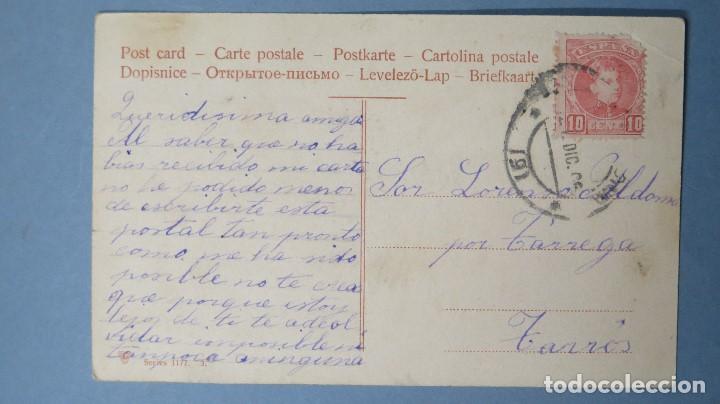 Post card – Carte postale – Postkarte – Cartolina postale
Dopisnice – Открытое-письмо – Levelező-Lap – Briefkaart
ESPAÑA
10 CENTS 10
DIC. 06
161
Queridisima amiga
Al saber que no ha
bias recibido mi carta
no he podido menos
de escribirte esta
postal tan pronto
como me ha sido
posible no te crea
que porque estoy
lejos de ti te a de ol
vidar imposible ni
tampoco a ninguna
Sor Lorenza Aldoma
por Tarrega
Tarrós
Series 1177. 3.
todocoleccion.net